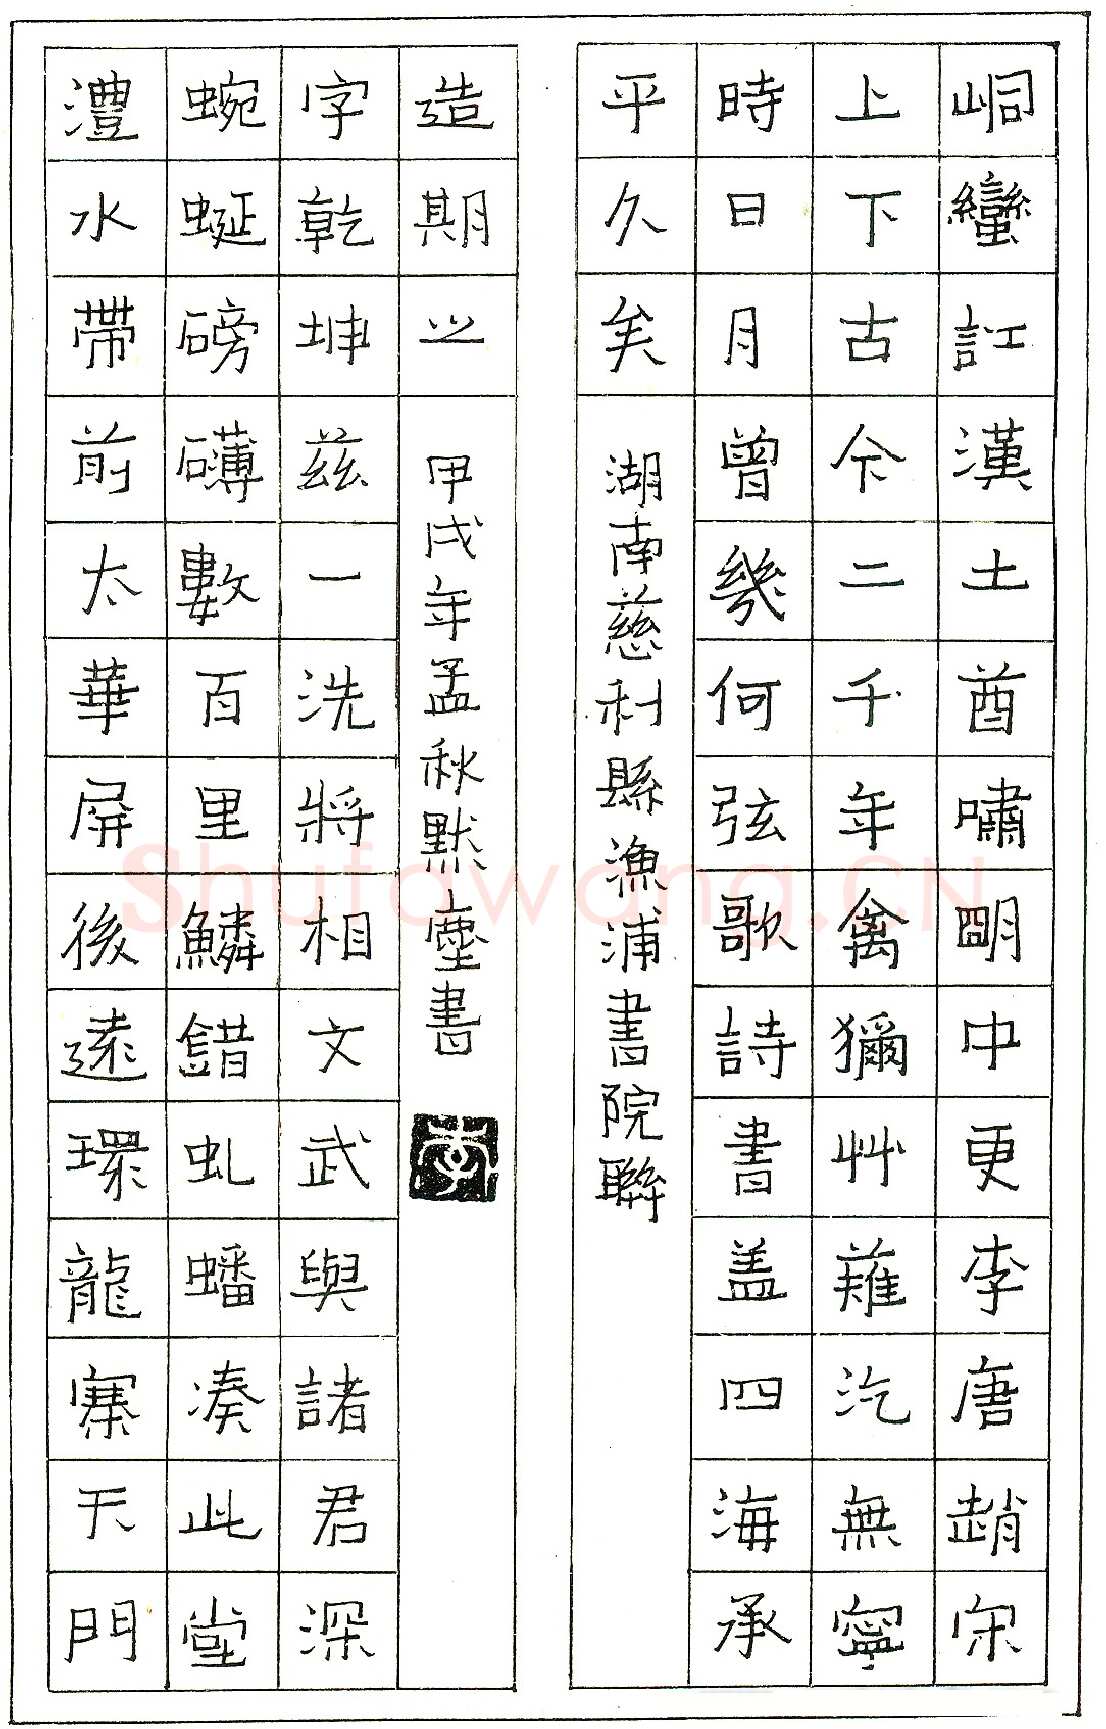 峒蠻訌漢土酋嘯朙中更李唐趙宋
上下古今二千年禽獮艸薙汔無寧
時日月曾幾何弦歌詩書盖四海承
平久矣
湖南慈利縣漁浦書院聯
澧水帶前太華屏後遠環龍寨天門
蜿蜒磅礴數百里鱗錯虬蟠凑此堂
字乾坤兹一洗將相文武與諸君深
造期之
甲戌年孟秋默塵書
Shufawang.CN